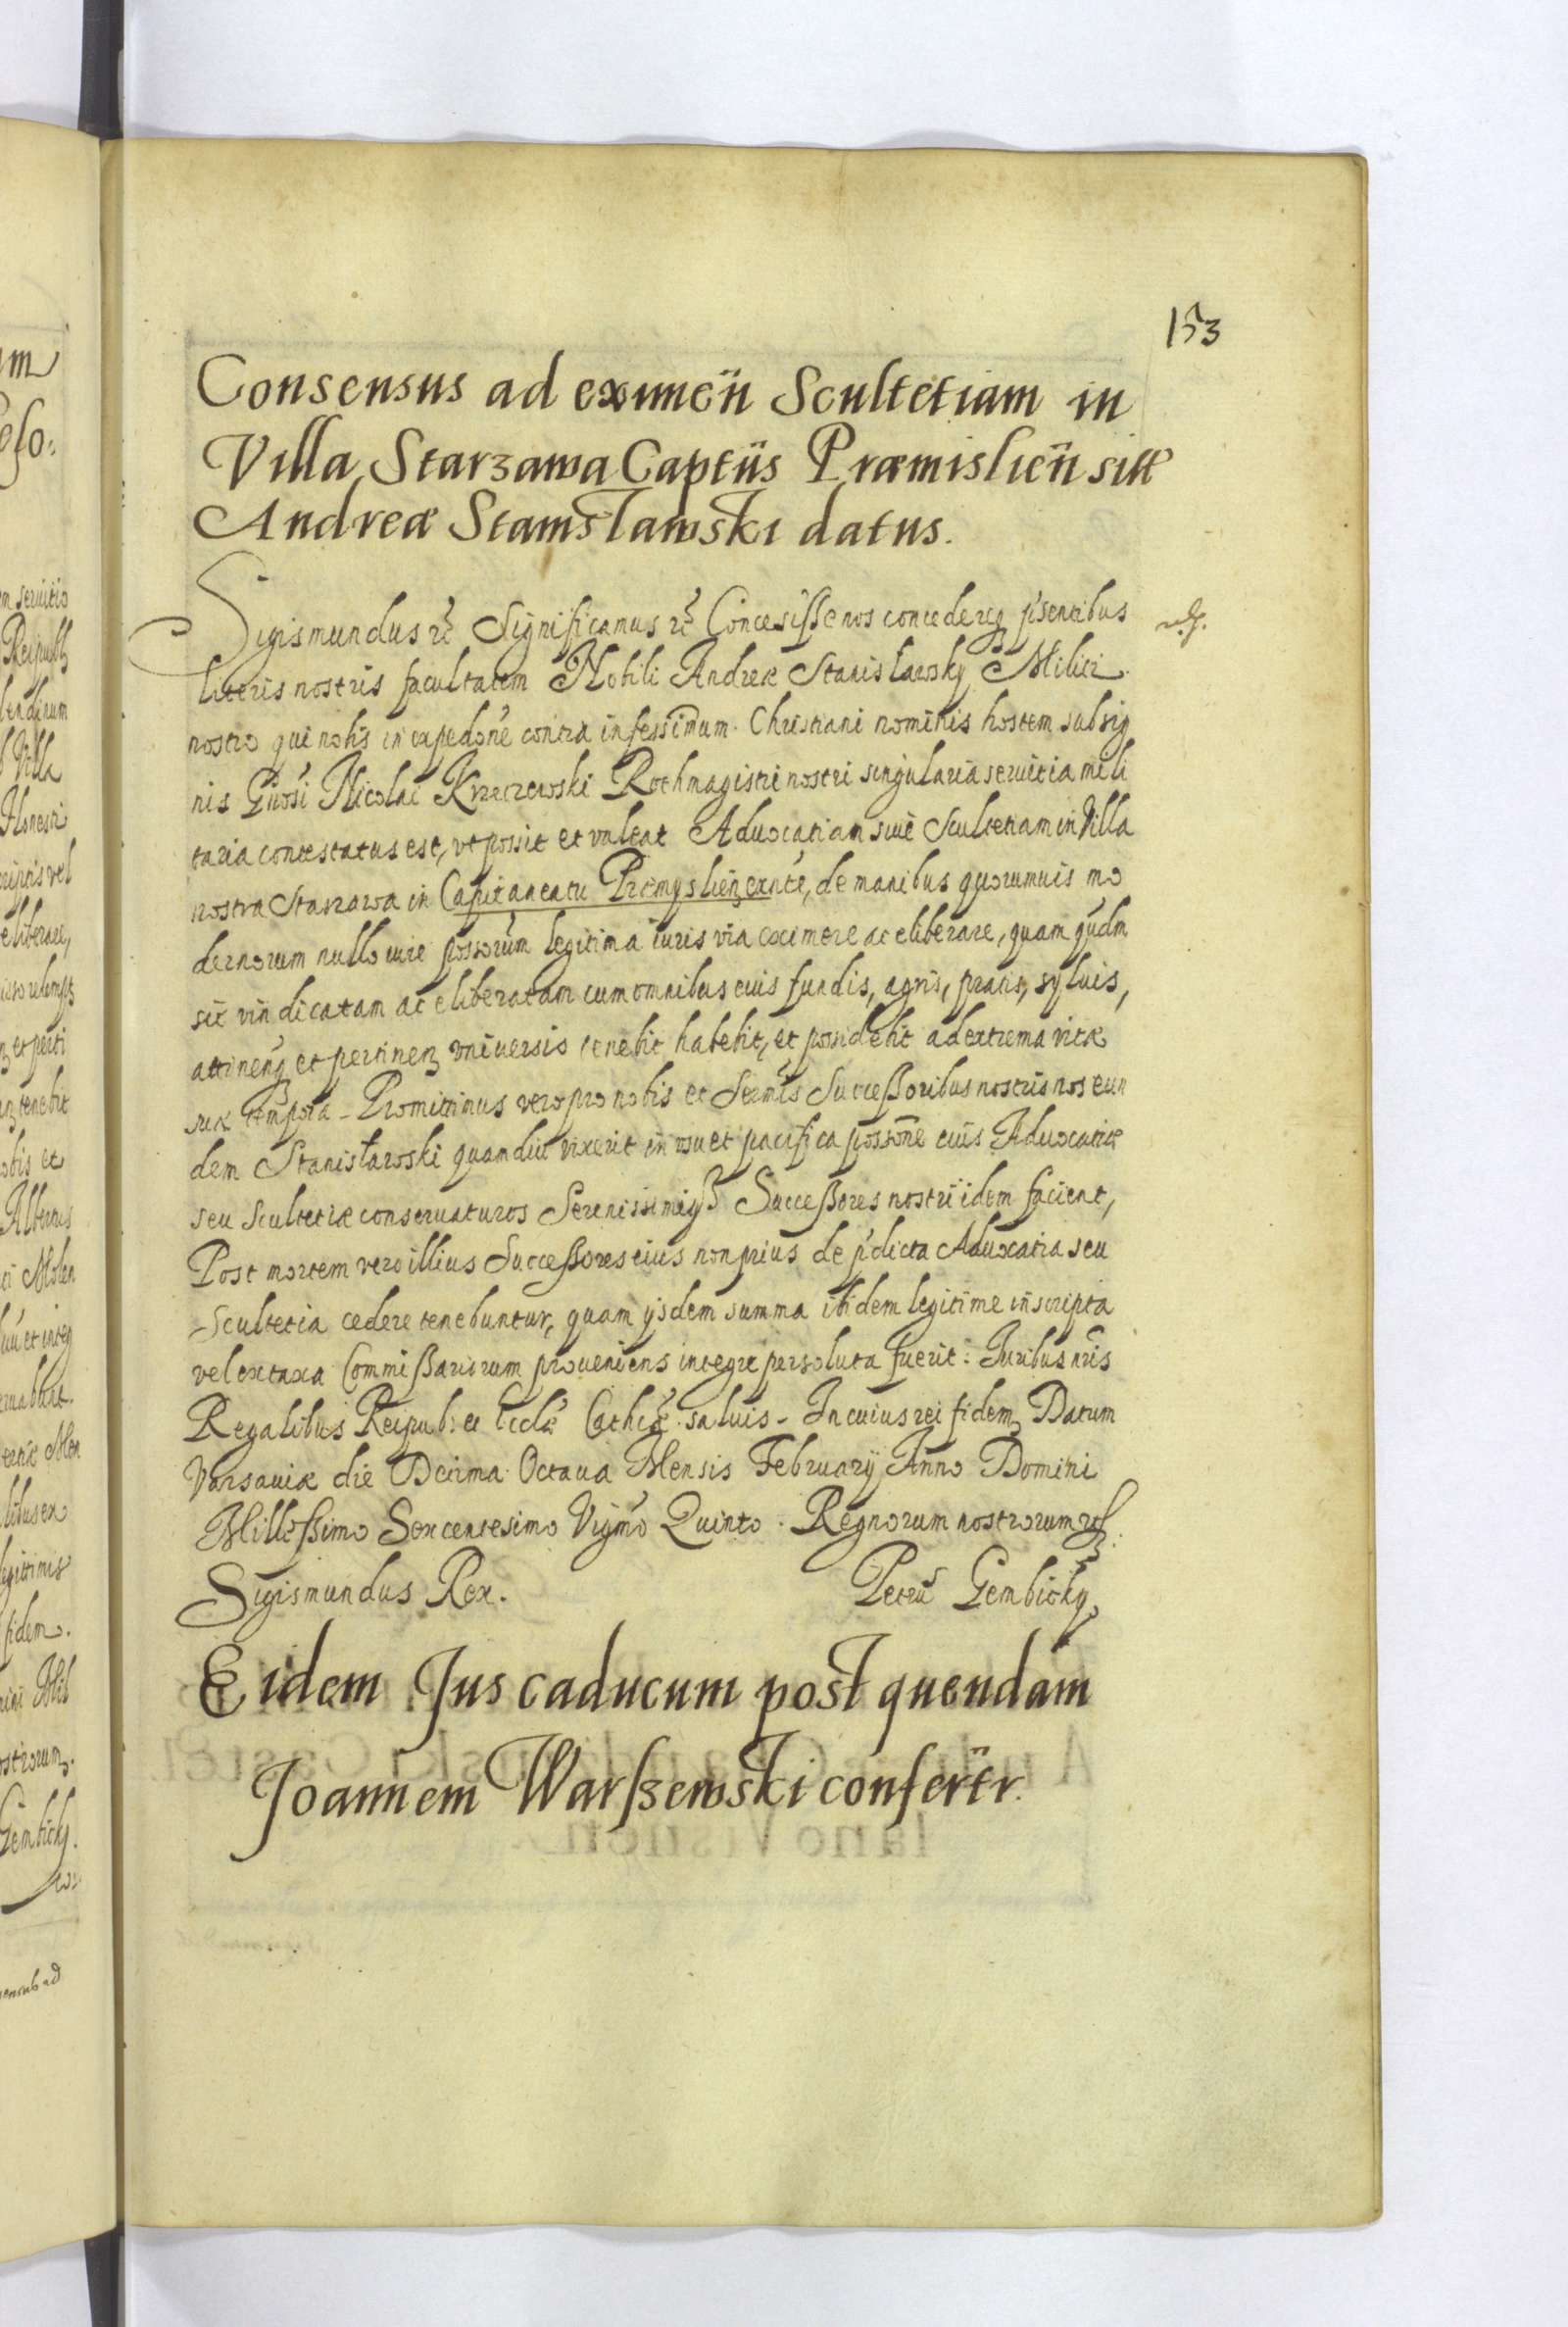 153
Consensus ad eximen̈ Scultetiam in
Villa Starzawa Captu̇s Præmislien̈ sitt̃
Andreæ Stanisławski datus.
Sigismundus rc̃ Significamus rc̃ Concesisse nos concedereq pr̃sentibus
literis nostris facultatem Nobili Andreæ Stanisławsky Militi
nostro qui nobis in expedõne contra infessimum Christiani nominis hostem sub sig
nis Gn̈osi Nicolai Krzeczewski Rothmagistri nostri singularia servitia mili
taria contestatus est, vt possit et valeat Aduocatiam siue Scultetiam in Villa
nostra Starzawa in Capitaneatu Præmyslien̄ exñte, de manibus quorumuis mo
dernorum nullo iure possorum legitima iuris via eximere ac eliberare, quam qudm̃
sic vindicatam ac eliberatam cum omnibus eius fundis, agris, pratis, syluis,
attinenȝ et pertinenȝ vniuersis tenebit habebit, et possidebit ad extrema vitæ
suæ tempora - Promittimus vero pro nobis et Sermĩs Successoribus nostris nos eun
dem Stanisławski quamdiu vixerit in vsu et pacifica possõne eius Aduocatiæ
seu Scultetiæ conseruaturos Serenissimiqȝ Successores nostri idem facient,
Post mortem vero illius Successores eius non prius de pr̃dicta Aduocatia seu
Scultetia cedere tenebuntur, quam ijsdem summa ibidem legitime inscripta
vel ex taxa Commissariorum proueniens integre persoluta fuerit: Iuribus nr̃is
Regalibus Reipub: et Eccłæ Cathcæ̃ saluis - In cuius rei fidem Datum
Varsauiæ die Decima Octaua Mensis February Anno Domini
Millessimo Sexcentesimo Vigmõ Quinto. Regnorum nostrorum
Sigismundus Rex. Petrus Gembicky
Eidem Jus caducum post quendam
Joannem Warszewski confertr.